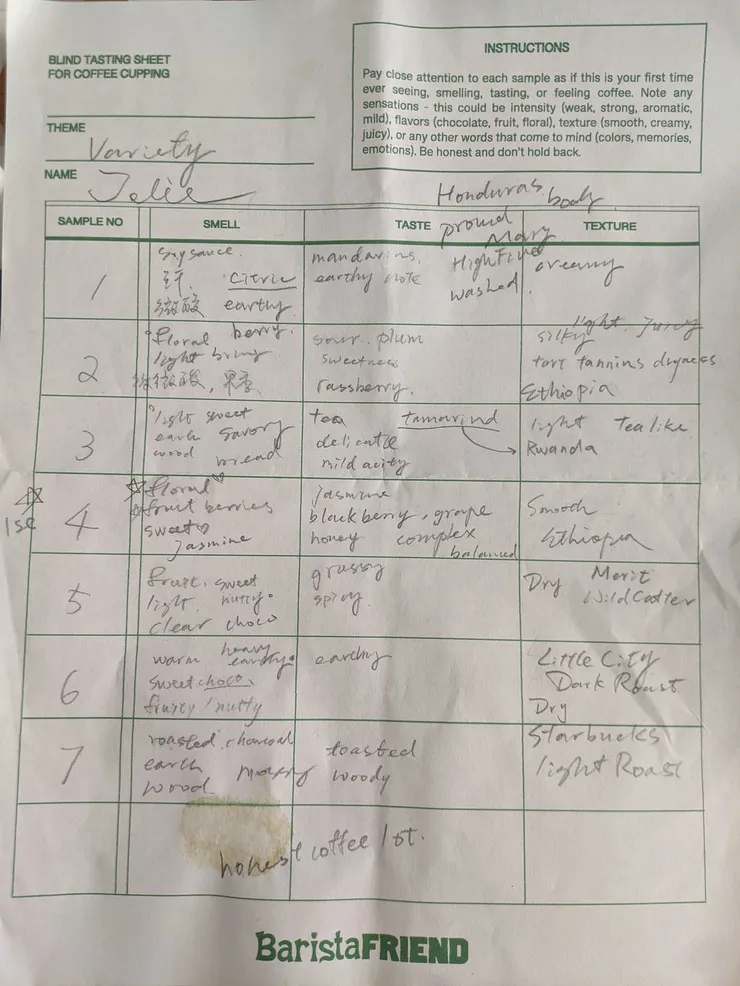 BLIND TASTING SHEET
FOR COFFEE CUPPING
THEME
Variety
NAME
Jolie
INSTRUCTIONS
Pay close attention to each sample as if this is your first time
ever seeing, smelling, tasting, or feeling coffee. Note any
sensations - this could be intensity (weak, strong, aromatic,
mild), flavors (chocolate, fruit, floral), texture (smooth, creamy,
juicy), or any other words that come to mind (colors, memories,
emotions). Be honest and don't hold back.
Honduras. body
proud
Mary
SAMPLE NO
SMELL
TASTE
TEXTURE
1
soy sauce.
citric
微酸 earthy
mandarins.
earthy note
washed
creamy
2
floral berry.
light
微酸, 果香
sour. plum
sweetness
rassberry.
light. Juicy
silky
tart tannins dryness
Ethiopia
3
light sweet
earth savory
wood bread
tea tamarind
delicatie
mild acity
light Tea like
Rwanda
1st
4
floral
fruit berries
sweet
Jasmine
Jasmine
blackberry, grape
honey complex
balanced
Smooth
Ethiopia
5
fruit. sweet
light. nutty.
clear choco
grassy
spicy
Dry Merit
Wild Catter
6
warm heavy
earthy.
sweet choco.
fruity / nutty
earthy
Little City
Dark Roast
Dry
7
roasted charcoal
earth
wood.
toasted
woody
Starbucks
light Roast
honest coffee lot.
BaristaFRIEND